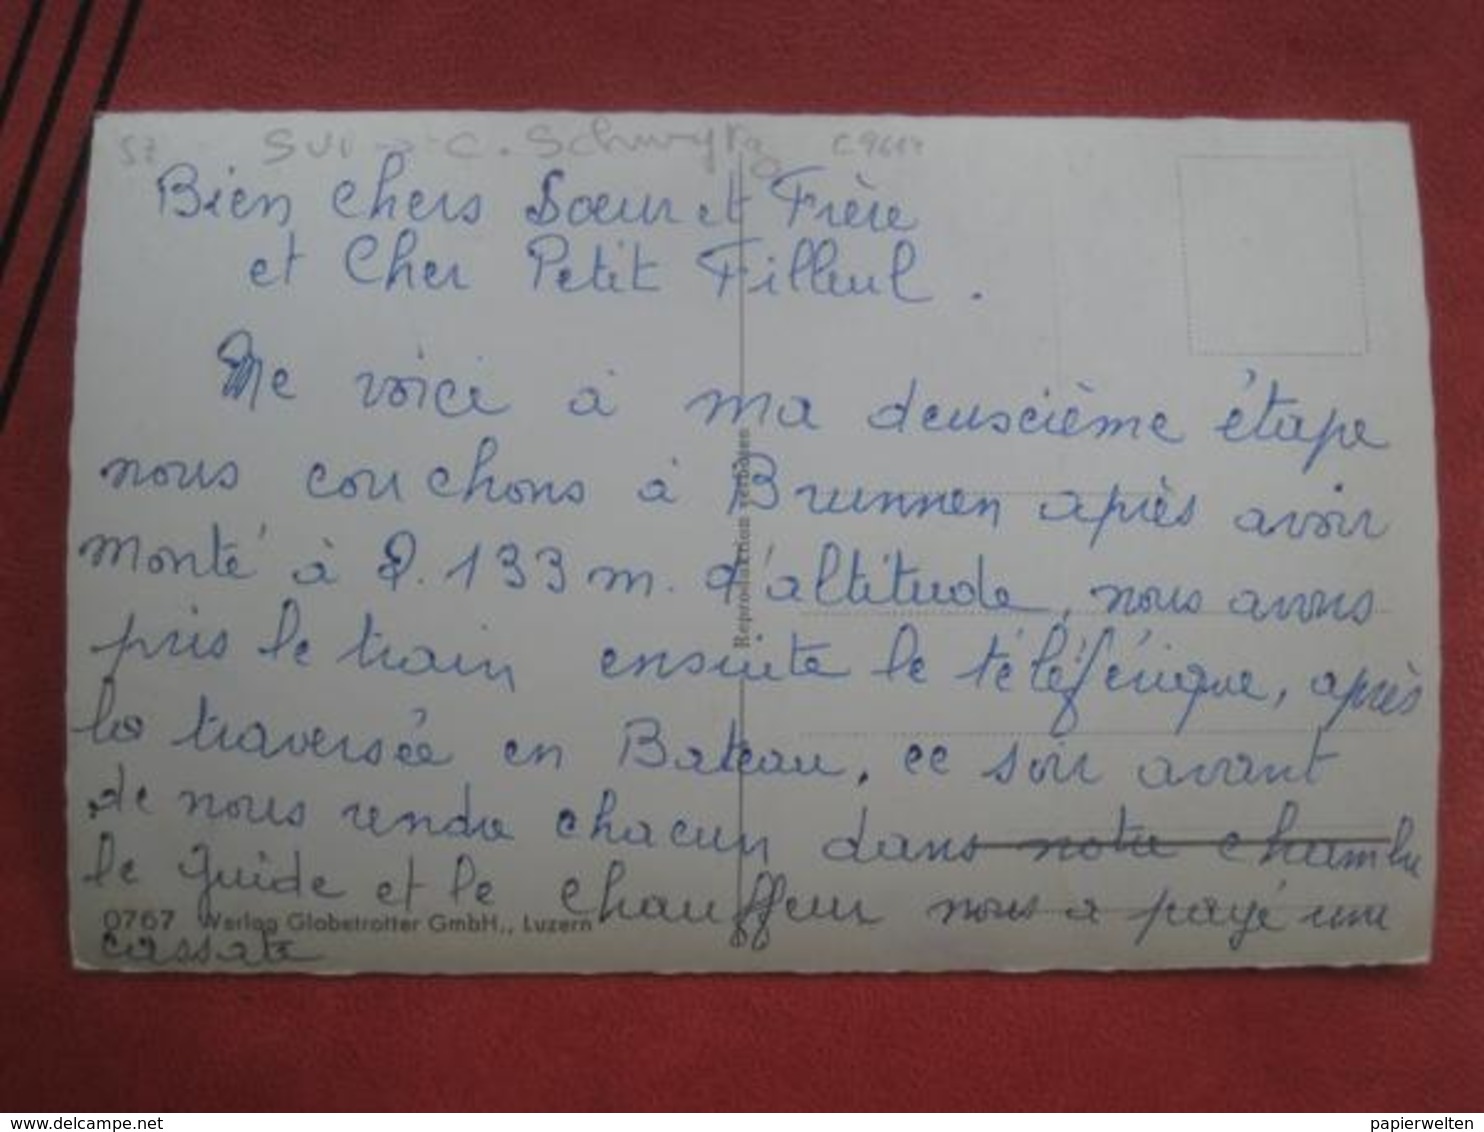 SZ
C. Schwyz
Bien Chers Soeur et Frère
et Cher Petit Filleul.
Me voici à ma deuscième étape
nous couchons à Brunnen après avoir
monté à 2.133 m. d'altitude, nous avons
pris le train ensuite le téléférique, après
la traversée en Bateau, ce soir avant
de nous rendre chacun dans notre chambre
le guide et le chauffeur nous a payé une
cassate
0767 Verlag Globetrotter GmbH., Luzern
Reproduktion verboten
www.delcampe.net
papierwelten